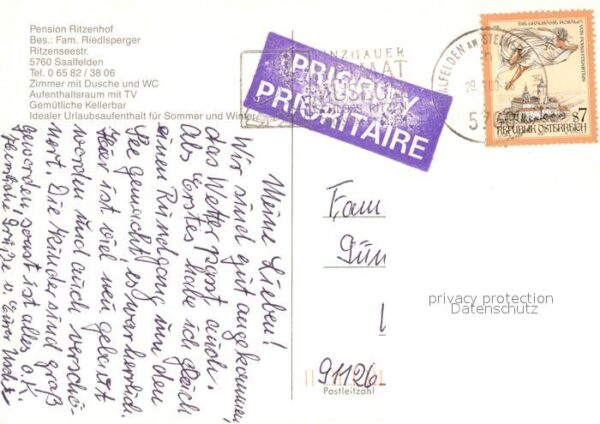 Pension Ritzenhof
Bes.: Fam. Riedlsperger
Ritzenseestr.
5760 Saalfelden
Tel. 0 65 82 / 38 06
Zimmer mit Dusche und WC
Aufenthaltsraum mit TV
Gemütliche Kellerbar
Idealer Urlaubsaufenthalt für Sommer und Winter
PINZGAUER
HEIMAT
MUSEUM
SCHLOSS RITZEN
PRIORITY
PRIORITAIRE
SAALFELDEN AM STEIN
5760
S7
REPUBLIK ÖSTERREICH
Meine Lieben!
Wir sind gut angekommen,
das Wetter passt auch.
Als Erstes habe ich gleich
einen Rundgang um den
See gemacht es war herrlich.
Hier ist viel neu gebaut
worden und auch verschö
nert. Die Kinder sind groß
geworden, sonst ist alles o.K.
Herzliche Grüße v. Eurer
Fam
Gün
91126
Postleitzahl
privacy protection
Datenschutz